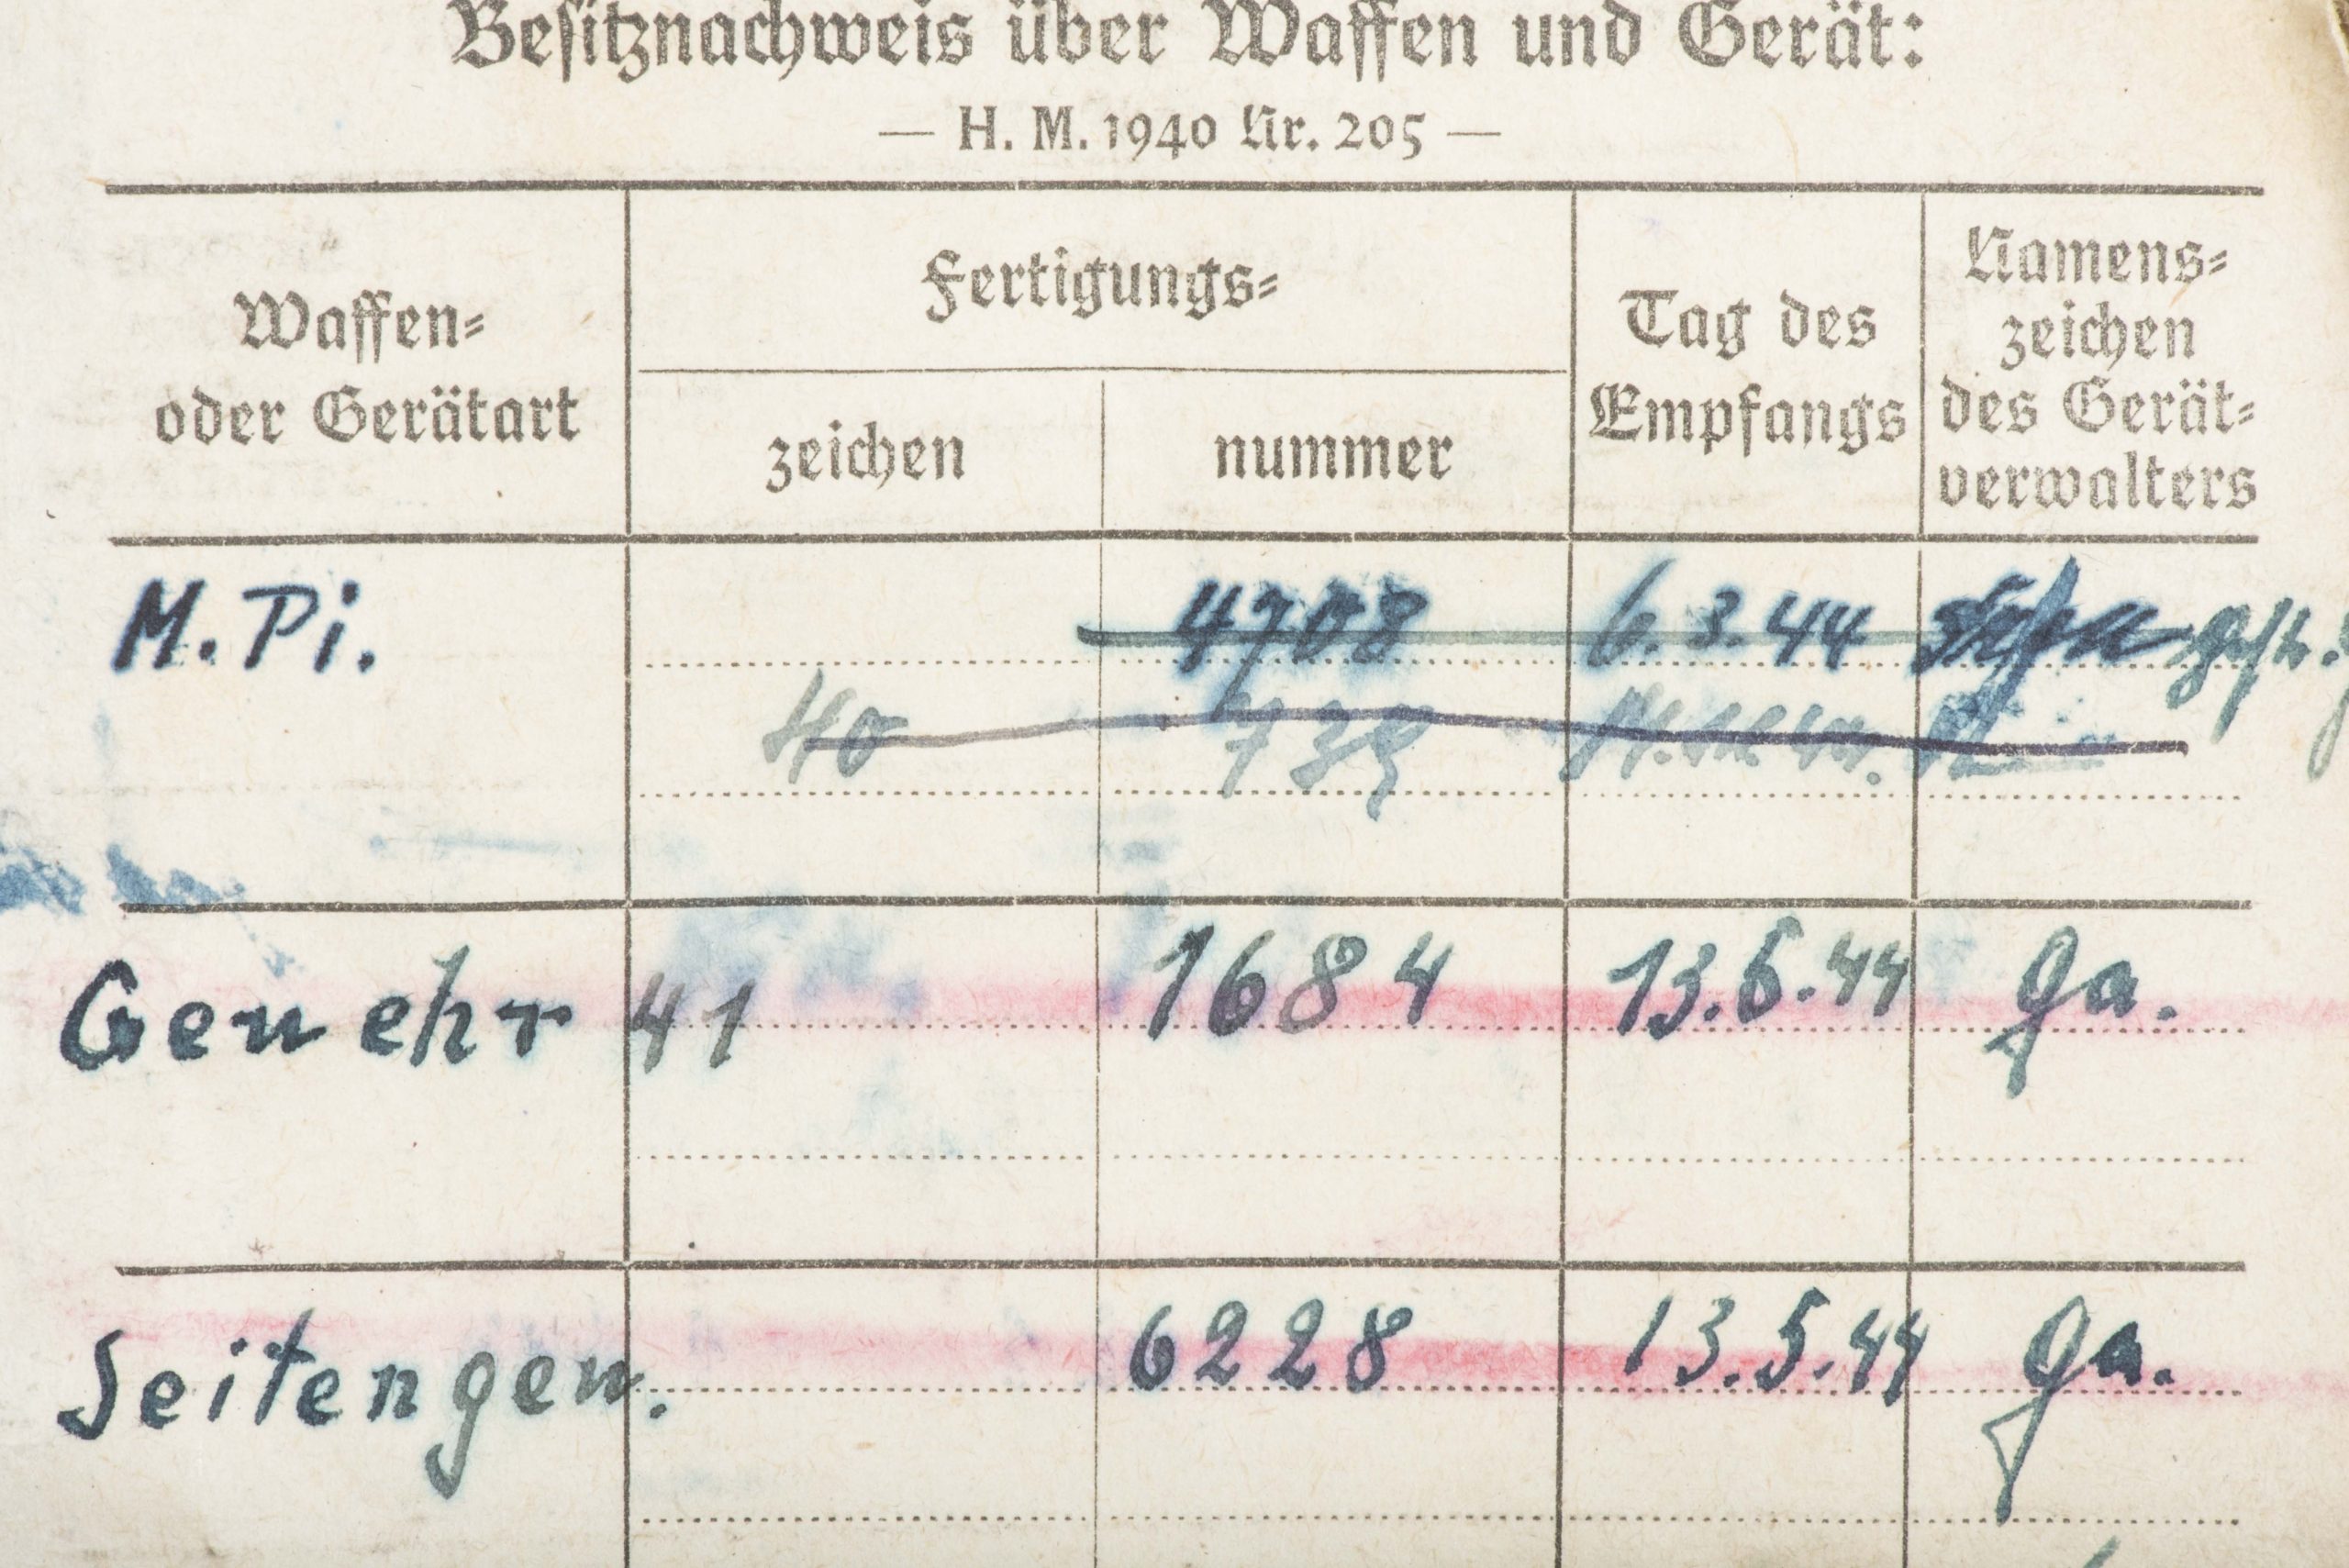 Besitznachweis über Waffen und Gerät:
— H. M. 1940 Nr. 205 —
Waffen-
oder Gerätart
Fertigungs-
zeichen
nummer
Tag des
Empfangs
Namens-
zeichen
des Gerät-
verwalters
M.Pi. 4708 6.3.44
40
Gewehr 41 1684 13.5.44 Ga.
Seitengew. 6228 13.5.44 Ga.